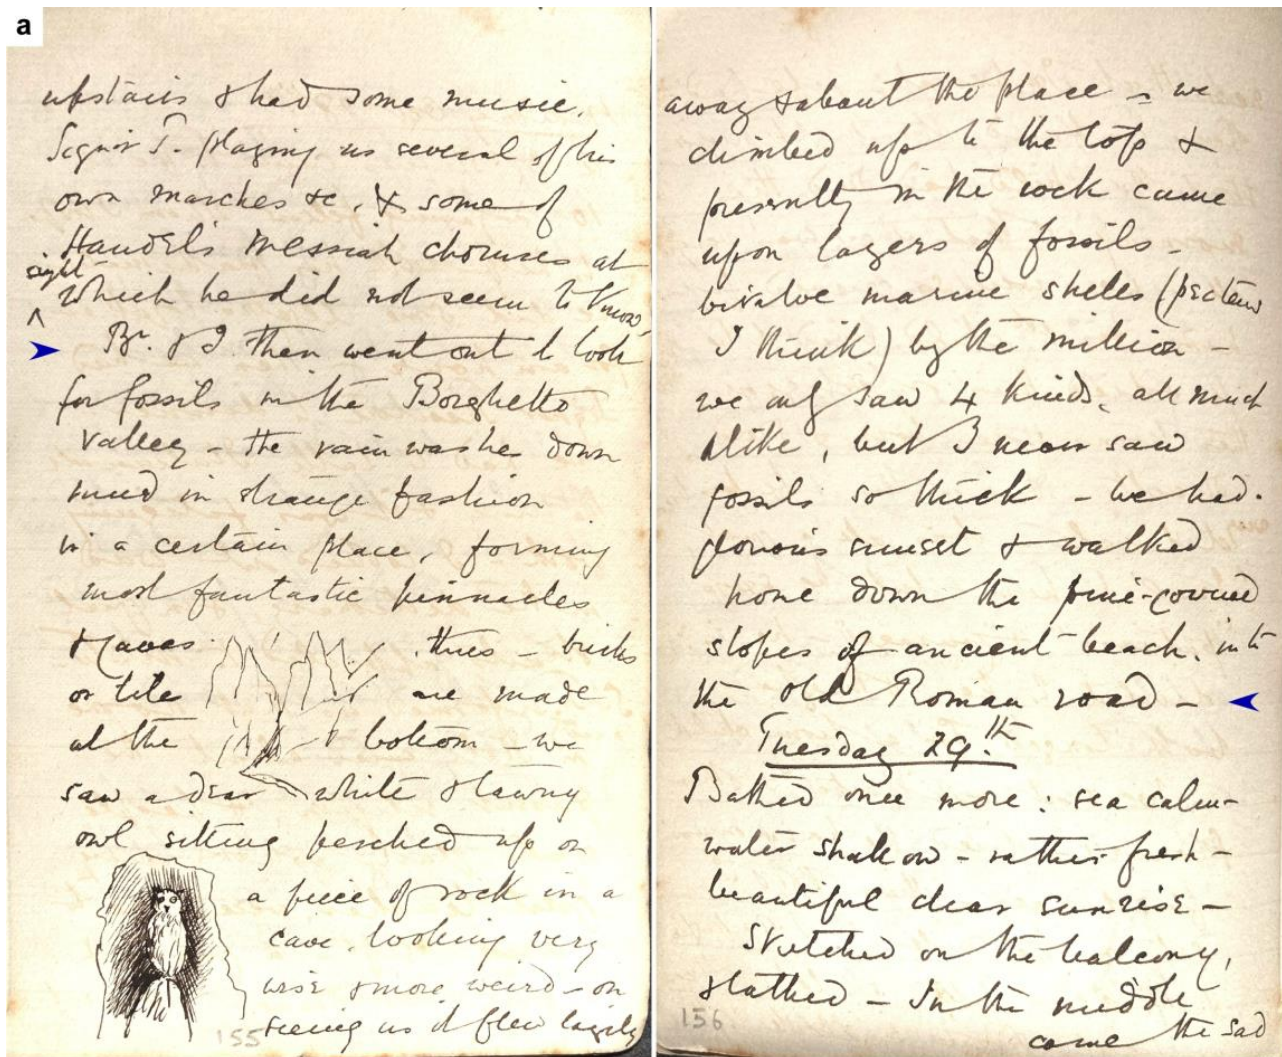 a
upstairs & had some music.
Signor T. playing us several of his
own marches &c. & some of
Handel's Messiah choruses at
sight
which he did not seem to know.
Br. & I then went out to look
for fossils in the Borghetto
valley – the rain washes down
mud in strange fashion
in a certain place, forming
most fantastic pinnacles
& caves thus – bricks
or tile are made
at the bottom – we
saw a dear white & tawny
owl sitting perched up on
a piece of rock in a
cave, looking very
wise & more weird – on
seeing us it flew lazily
155
away & about the place – we
climbed up to the top &
presently in the rock came
upon layers of fossils –
bivalve marine shells (pectens
I think) by the million –
we only saw 4 kinds, all much
alike, but I never saw
fossils so thick – we had
glorious sunset & walked
home down the pine-covered
slopes of ancient beach, into
the old Roman road –
Tuesday 29.th
Bathed once more: sea calm –
water shallow – rather fresh –
beautiful clear sunrise –
Sketched on the balcony,
& bathed – In the middle
came the sad
156